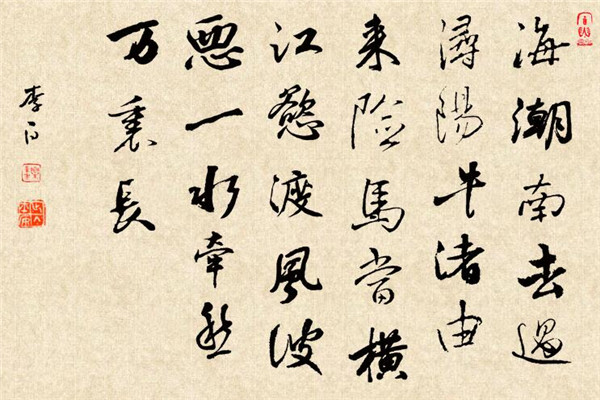 海潮南去過
潯陽牛渚由
来險馬當橫
江慾渡風波
惡一水牽愁
万裏長
李白